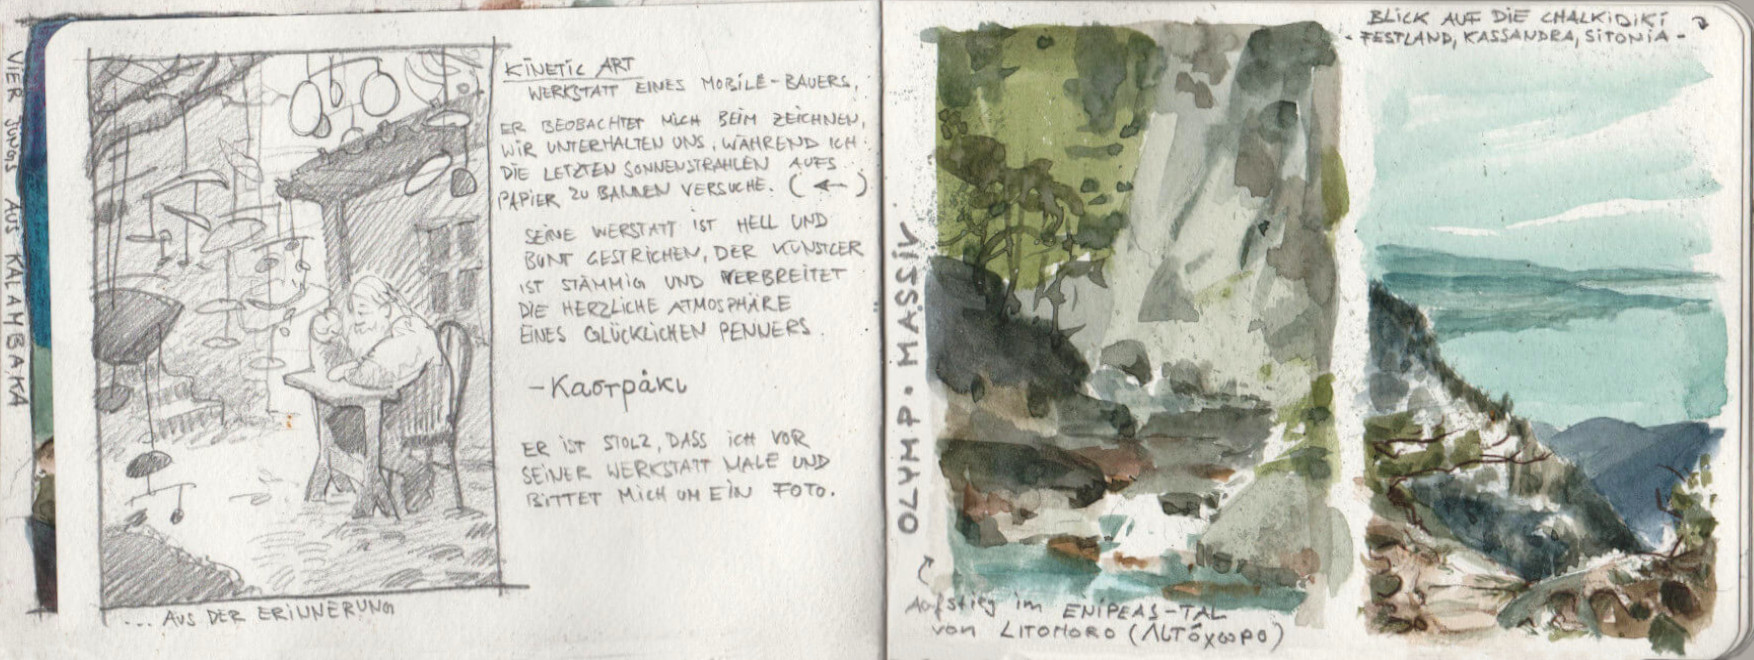 VIER JUNGS AUS KALAMBAKA
KINETIC ART
WERKSTATT EINES MOBILE-BAUERS,
ER BEOBACHTET MICH BEIM ZEICHNEN,
WIR UNTERHALTEN UNS, WÄHREND ICH
DIE LETZTEN SONNENSTRAHLEN AUFS
PAPIER ZU BANNEN VERSUCHE. (←)
SEINE WERSTATT IST HELL UND
BUNT GESTRICHEN, DER KÜNSTLER
IST STÄMMIG UND VERBREITET
DIE HERZLICHE ATMOSPHÄRE
EINES GLÜCKLICHEN PENNERS.
-Καστράκι
ER IST STOLZ, DASS ICH VOR
SEINER WERKSTATT MALE UND
BITTET MICH UM EIN FOTO.
... AUS DER ERINNERUNG
OLYMP. MASSIV.
Aufstieg im ENIPEAS-TAL
von LITOHORO (Λιτόχωρο)
BLICK AUF DIE CHALKIDIKI
- FESTLAND, KASSANDRA, SITONIA -